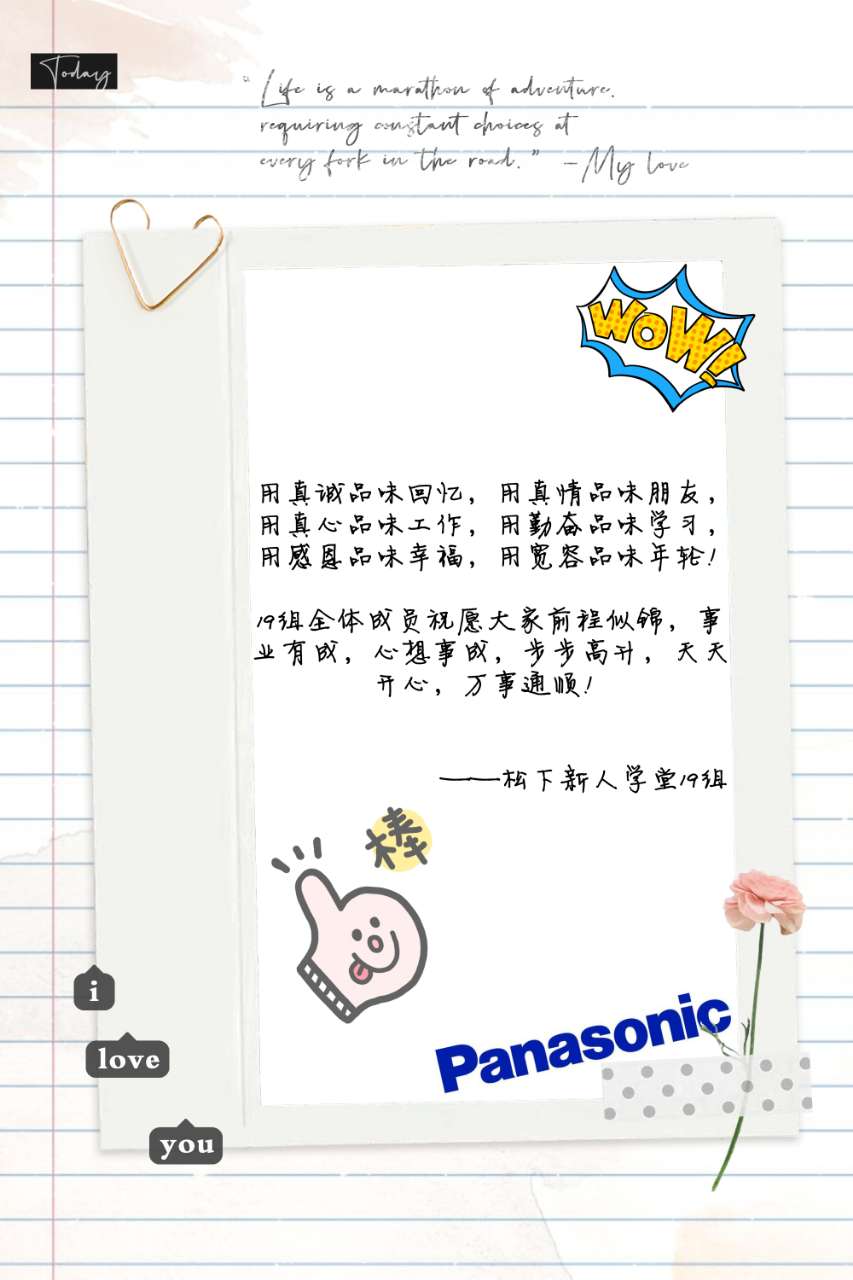 Today
“Life is a marathon of adventure,
requiring constant choices at
every fork in the road.” -My love
WOW!
用真诚品味回忆，用真情品味朋友，
用真心品味工作，用勤奋品味学习，
用感恩品味幸福，用宽容品味年轮！
19组全体成员祝愿大家前程似锦，事
业有成，心想事成，步步高升，天天
开心，万事通顺！
——松下新人学堂19组
棒
i
love
you
Panasonic